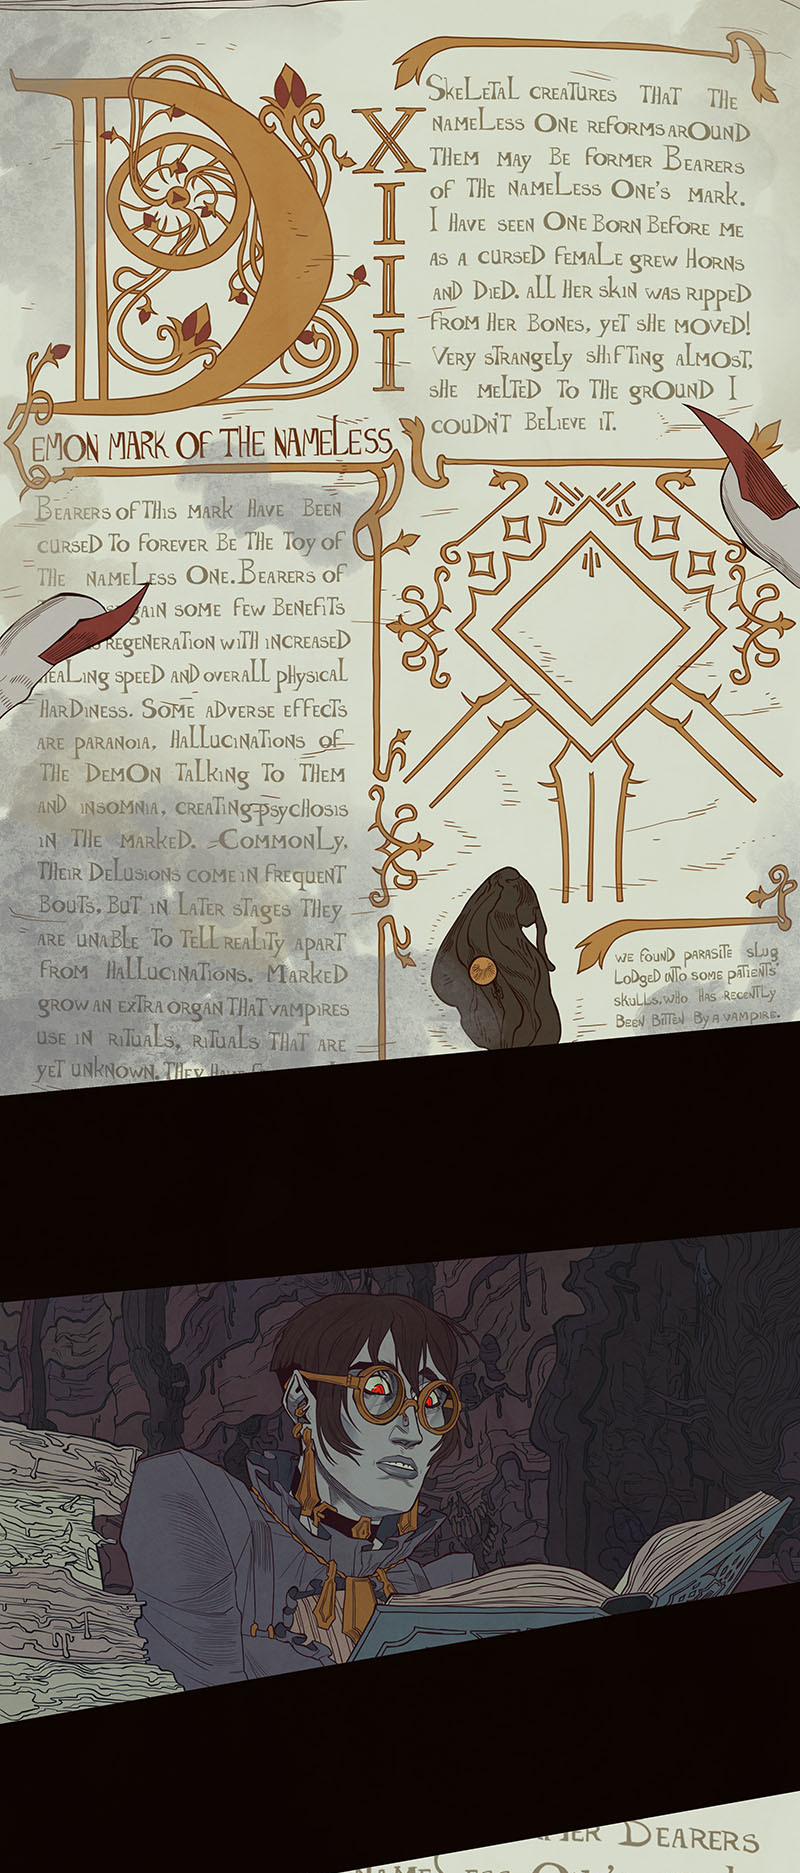 XIII
DEMON MARK OF THE NAMELESS
BEARERS OF THIS MARK HAVE BEEN
CURSED TO FOREVER BE THE TOY OF
THE NAMELESS ONE. BEARERS OF
GAIN SOME FEW BENEFITS
REGENERATION WITH INCREASED
HEALING SPEED AND OVERALL PHYSICAL
HARDINESS. SOME ADVERSE EFFECTS
ARE PARANOIA, HALLUCINATIONS OF
THE DEMON TALKING TO THEM
AND INSOMNIA, CREATING PSYCHOSIS
IN THE MARKED. COMMONLY,
THEIR DELUSIONS COME IN FREQUENT
BOUTS, BUT IN LATER STAGES THEY
ARE UNABLE TO TELL REALITY APART
FROM HALLUCINATIONS. MARKED
GROW AN EXTRA ORGAN THAT VAMPIRES
USE IN RITUALS, RITUALS THAT ARE
YET UNKNOWN. THEY HAVE
SKELETAL CREATURES THAT THE
NAMELESS ONE REFORMS AROUND
THEM MAY BE FORMER BEARERS
OF THE NAMELESS ONE'S MARK.
I HAVE SEEN ONE BORN BEFORE ME
AS A CURSED FEMALE GREW HORNS
AND DIED. ALL HER SKIN WAS RIPPED
FROM HER BONES, YET SHE MOVED!
VERY STRANGELY SHIFTING ALMOST,
SHE MELTED TO THE GROUND I
COUDN'T BELIEVE IT.
WE FOUND PARASITE SLUG
LODGED INTO SOME PATIENTS'
SKULLS, WHO HAS RECENTLY
BEEN BITTEN BY A VAMPIRE.
BEARERS
NAMELESS ONE'